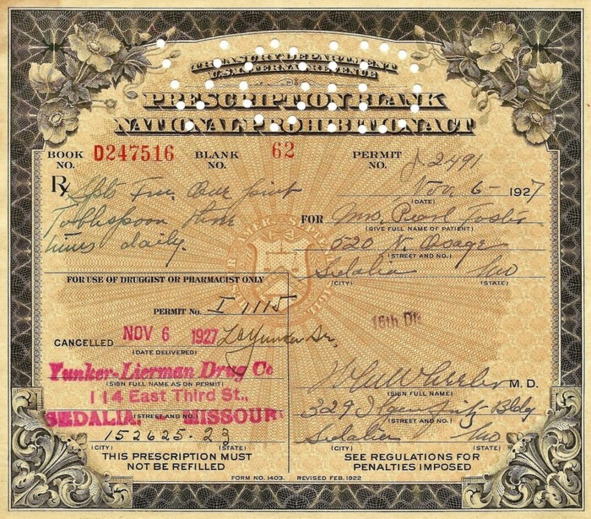 TREASURY DEPARTMENT
U.S. INTERNAL REVENUE
PRESCRIPTION BLANK
NATIONAL PROHIBITION ACT
BOOK NO. D247516 BLANK NO. 62 PERMIT NO. J 2491
Nov 6 - 1927
(DATE)
Rx Spts Fru. One pint
Tablespoon three
times daily.
FOR Mrs. Pearl Foster
(GIVE FULL NAME OF PATIENT)
620 N. Osage
(STREET AND NO.)
Sedalia Mo
(CITY) (STATE)
FOR USE OF DRUGGIST OR PHARMACIST ONLY
PERMIT No. I 1115
CANCELLED NOV 6 1927
(DATE DELIVERED)
16th Dis
Yunker-Lierman Drug Co
(SIGN FULL NAME AS ON PERMIT)
114 East Third St.,
SEDALIA, - MISSOURI
(STREET AND NO.)
152625.23
(CITY) (STATE)
THIS PRESCRIPTION MUST
NOT BE REFILLED
M.D.
(SIGN FULL NAME)
Bldg
(STREET AND NO.)
Sedalia Mo
(CITY) (STATE)
SEE REGULATIONS FOR
PENALTIES IMPOSED
FORM NO. 1403. REVISED FEB. 1922